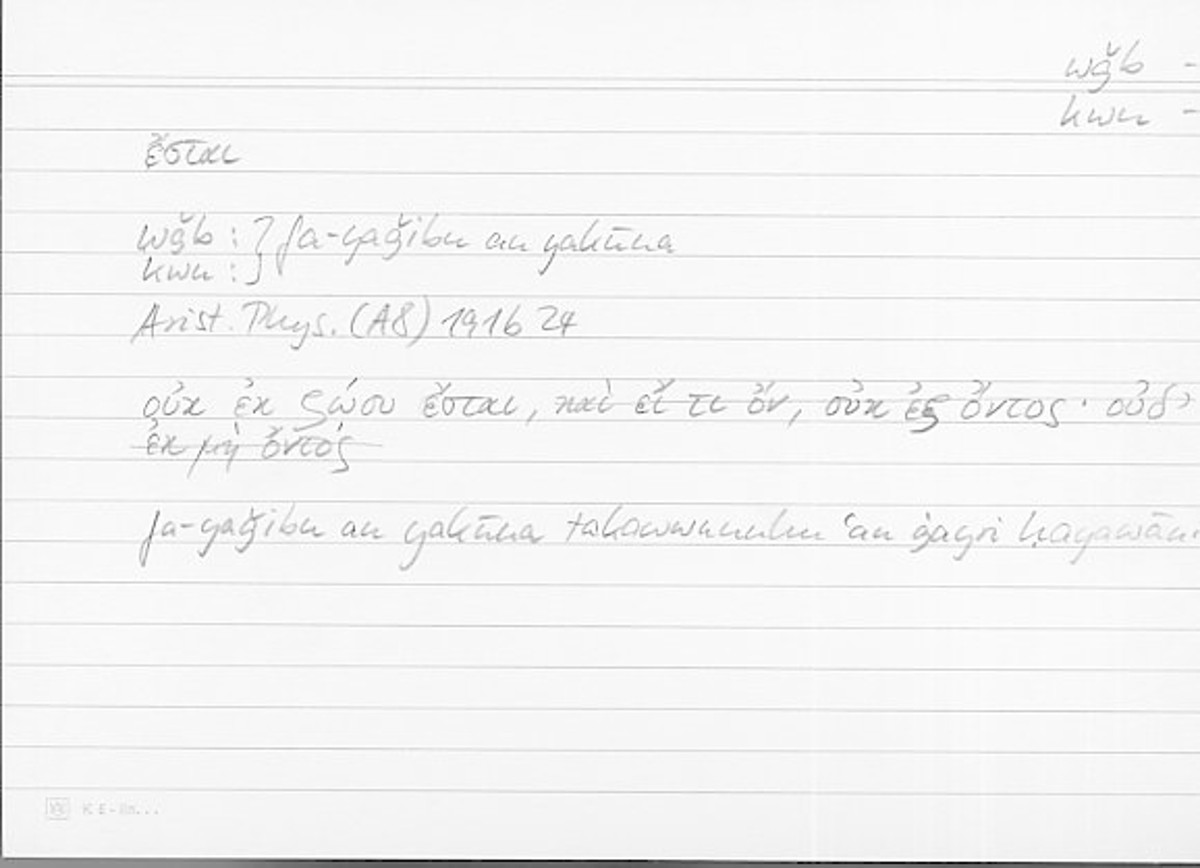 wǧb -
kwn -
ἔσται
wǧb : } fa-yaǧibu an yakūna
kwn : }
Arist. Phys. (A8) 191b 24
οὐκ ἐκ ζῴου ἔσται, καὶ εἴ τι ὄν, οὐκ ἐξ ὄντος· οὐδ’
ἐκ μὴ ὄντος
fa-yaǧibu an yakūna takawwunuhu ʿan ġayri ḥayawān